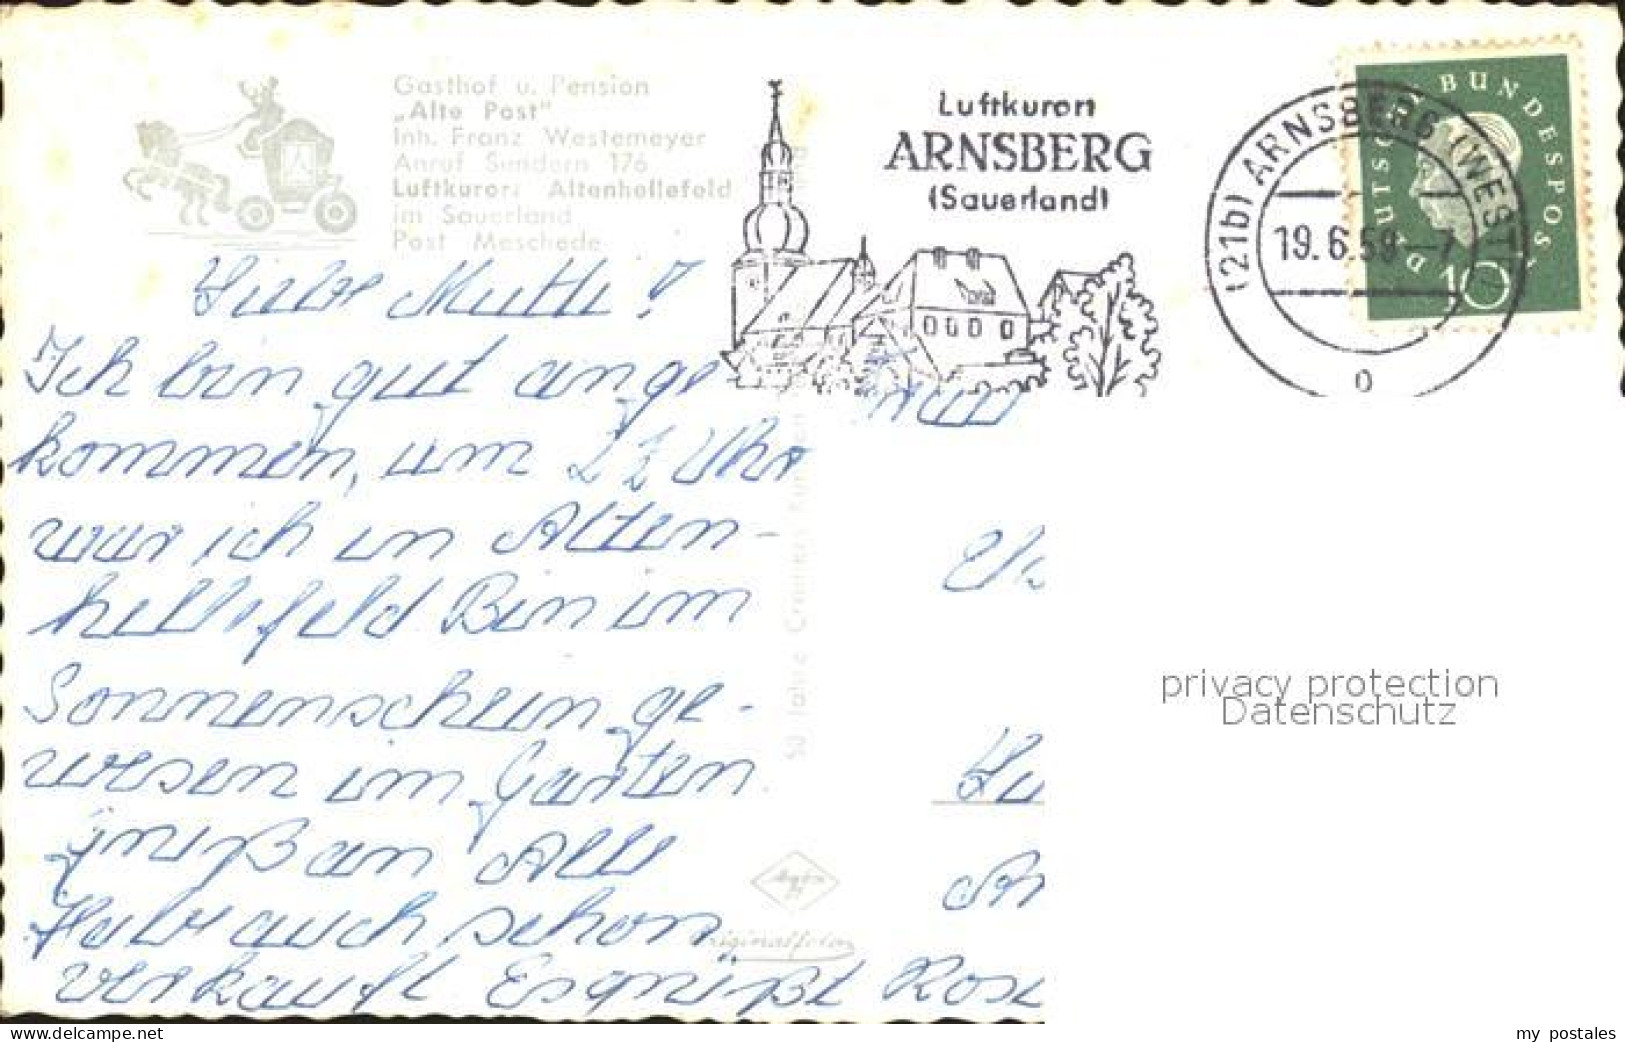 Gasthof u. Pension
„Alte Post"
Inh. Franz Westemeyer
Anruf Sundern 176
Luftkurort Altenhellefeld
im Sauerland
Post Meschede
Luftkurort
ARNSBERG
(Sauerland)
(21b) ARNSBERG (WESTF)
19.6.59-7
o
DEUTSCHE BUNDESPOST
10
Liebe Mutti!
Ich bin gut ange
kommen, um 2½ Uhr
war ich in Alten-
hellefeld Bin im
Sonnenschein ge-
wesen im Garten
gruß an Alle
Habe auch schon
verkauft Es grüßt Ros
50 Jahre Cramers
Agfa
Originalfoto
privacy protection
Datenschutz
www.delcampe.net
my_postales